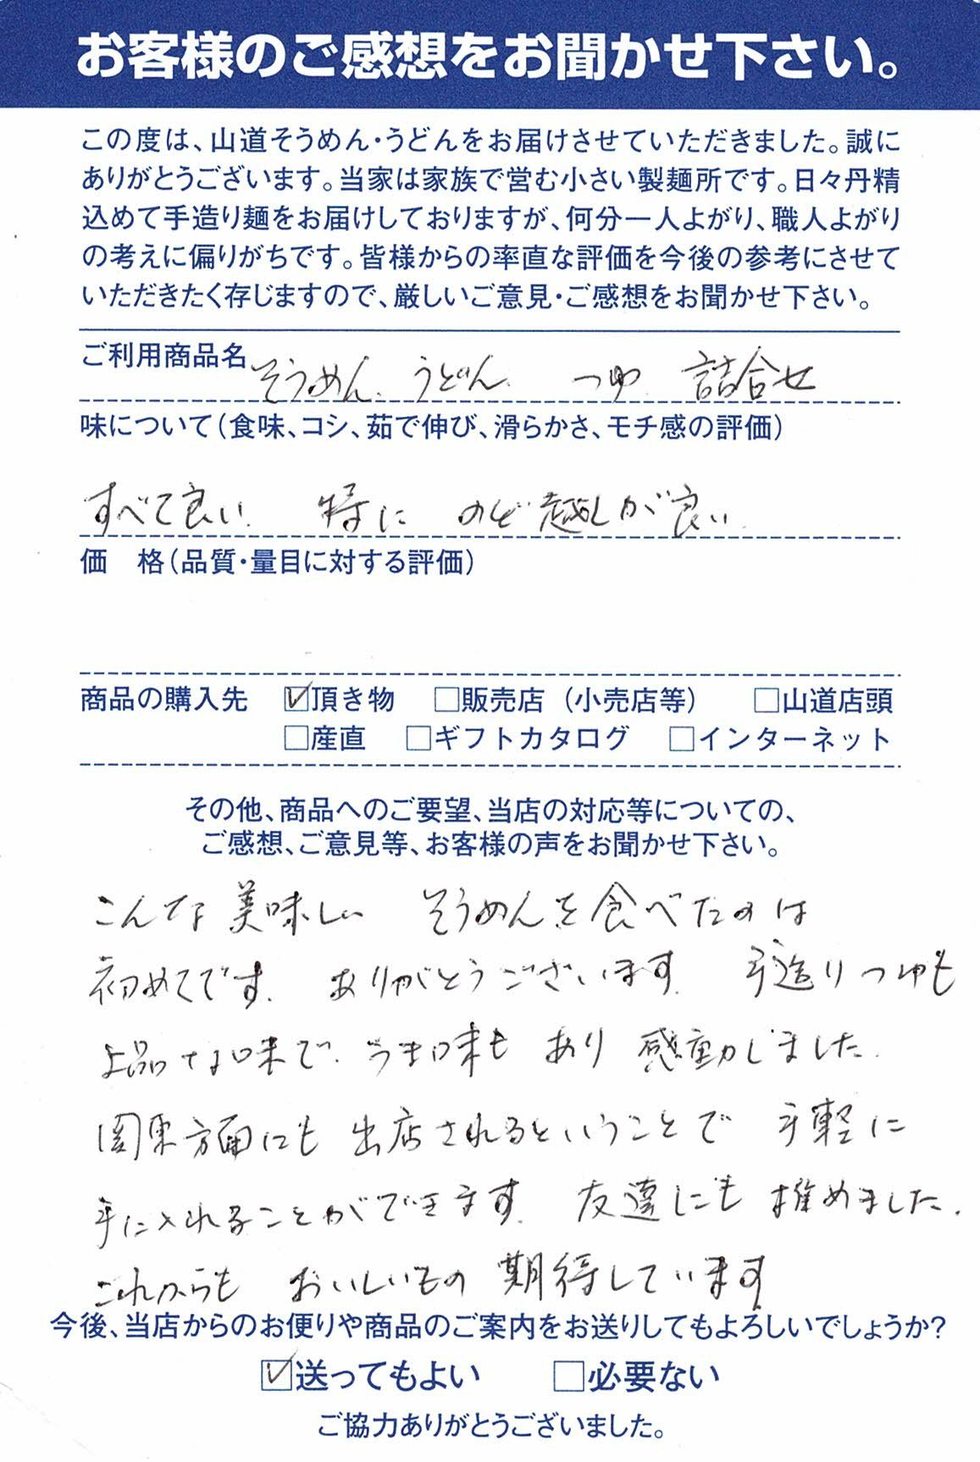 お客様のご感想をお聞かせ下さい。
この度は、山道そうめん・うどんをお届けさせていただきました。誠に
ありがとうございます。当家は家族で営む小さい製麺所です。日々丹精
込めて手造り麺をお届けしておりますが、何分一人よがり、職人よがり
の考えに偏りがちです。皆様からの率直な評価を今後の参考にさせて
いただきたく存じますので、厳しいご意見・ご感想をお聞かせ下さい。
ご利用商品名 そうめん、うどん、つゆ 詰合せ
味について（食味、コシ、茹で伸び、滑らかさ、モチ感の評価）
すべて良い。特に のど越しが良い。
価　格（品質・量目に対する評価）
商品の購入先 ☑頂き物 □販売店（小売店等） □山道店頭
□産直 □ギフトカタログ □インターネット
その他、商品へのご要望、当店の対応等についての、
ご感想、ご意見等、お客様の声をお聞かせ下さい。
こんな美味しい そうめんを食べたのは
初めてです。ありがとうございます。手造りつゆも
上品な味で、うま味も あり 感動しました。
関東方面にも 出店されるということで 手軽に
手に入れることができます。友達にも 推めました。
これからも おいしいもの 期待しています
今後、当店からのお便りや商品のご案内をお送りしてもよろしいでしょうか?
☑送ってもよい □必要ない
ご協力ありがとうございました。